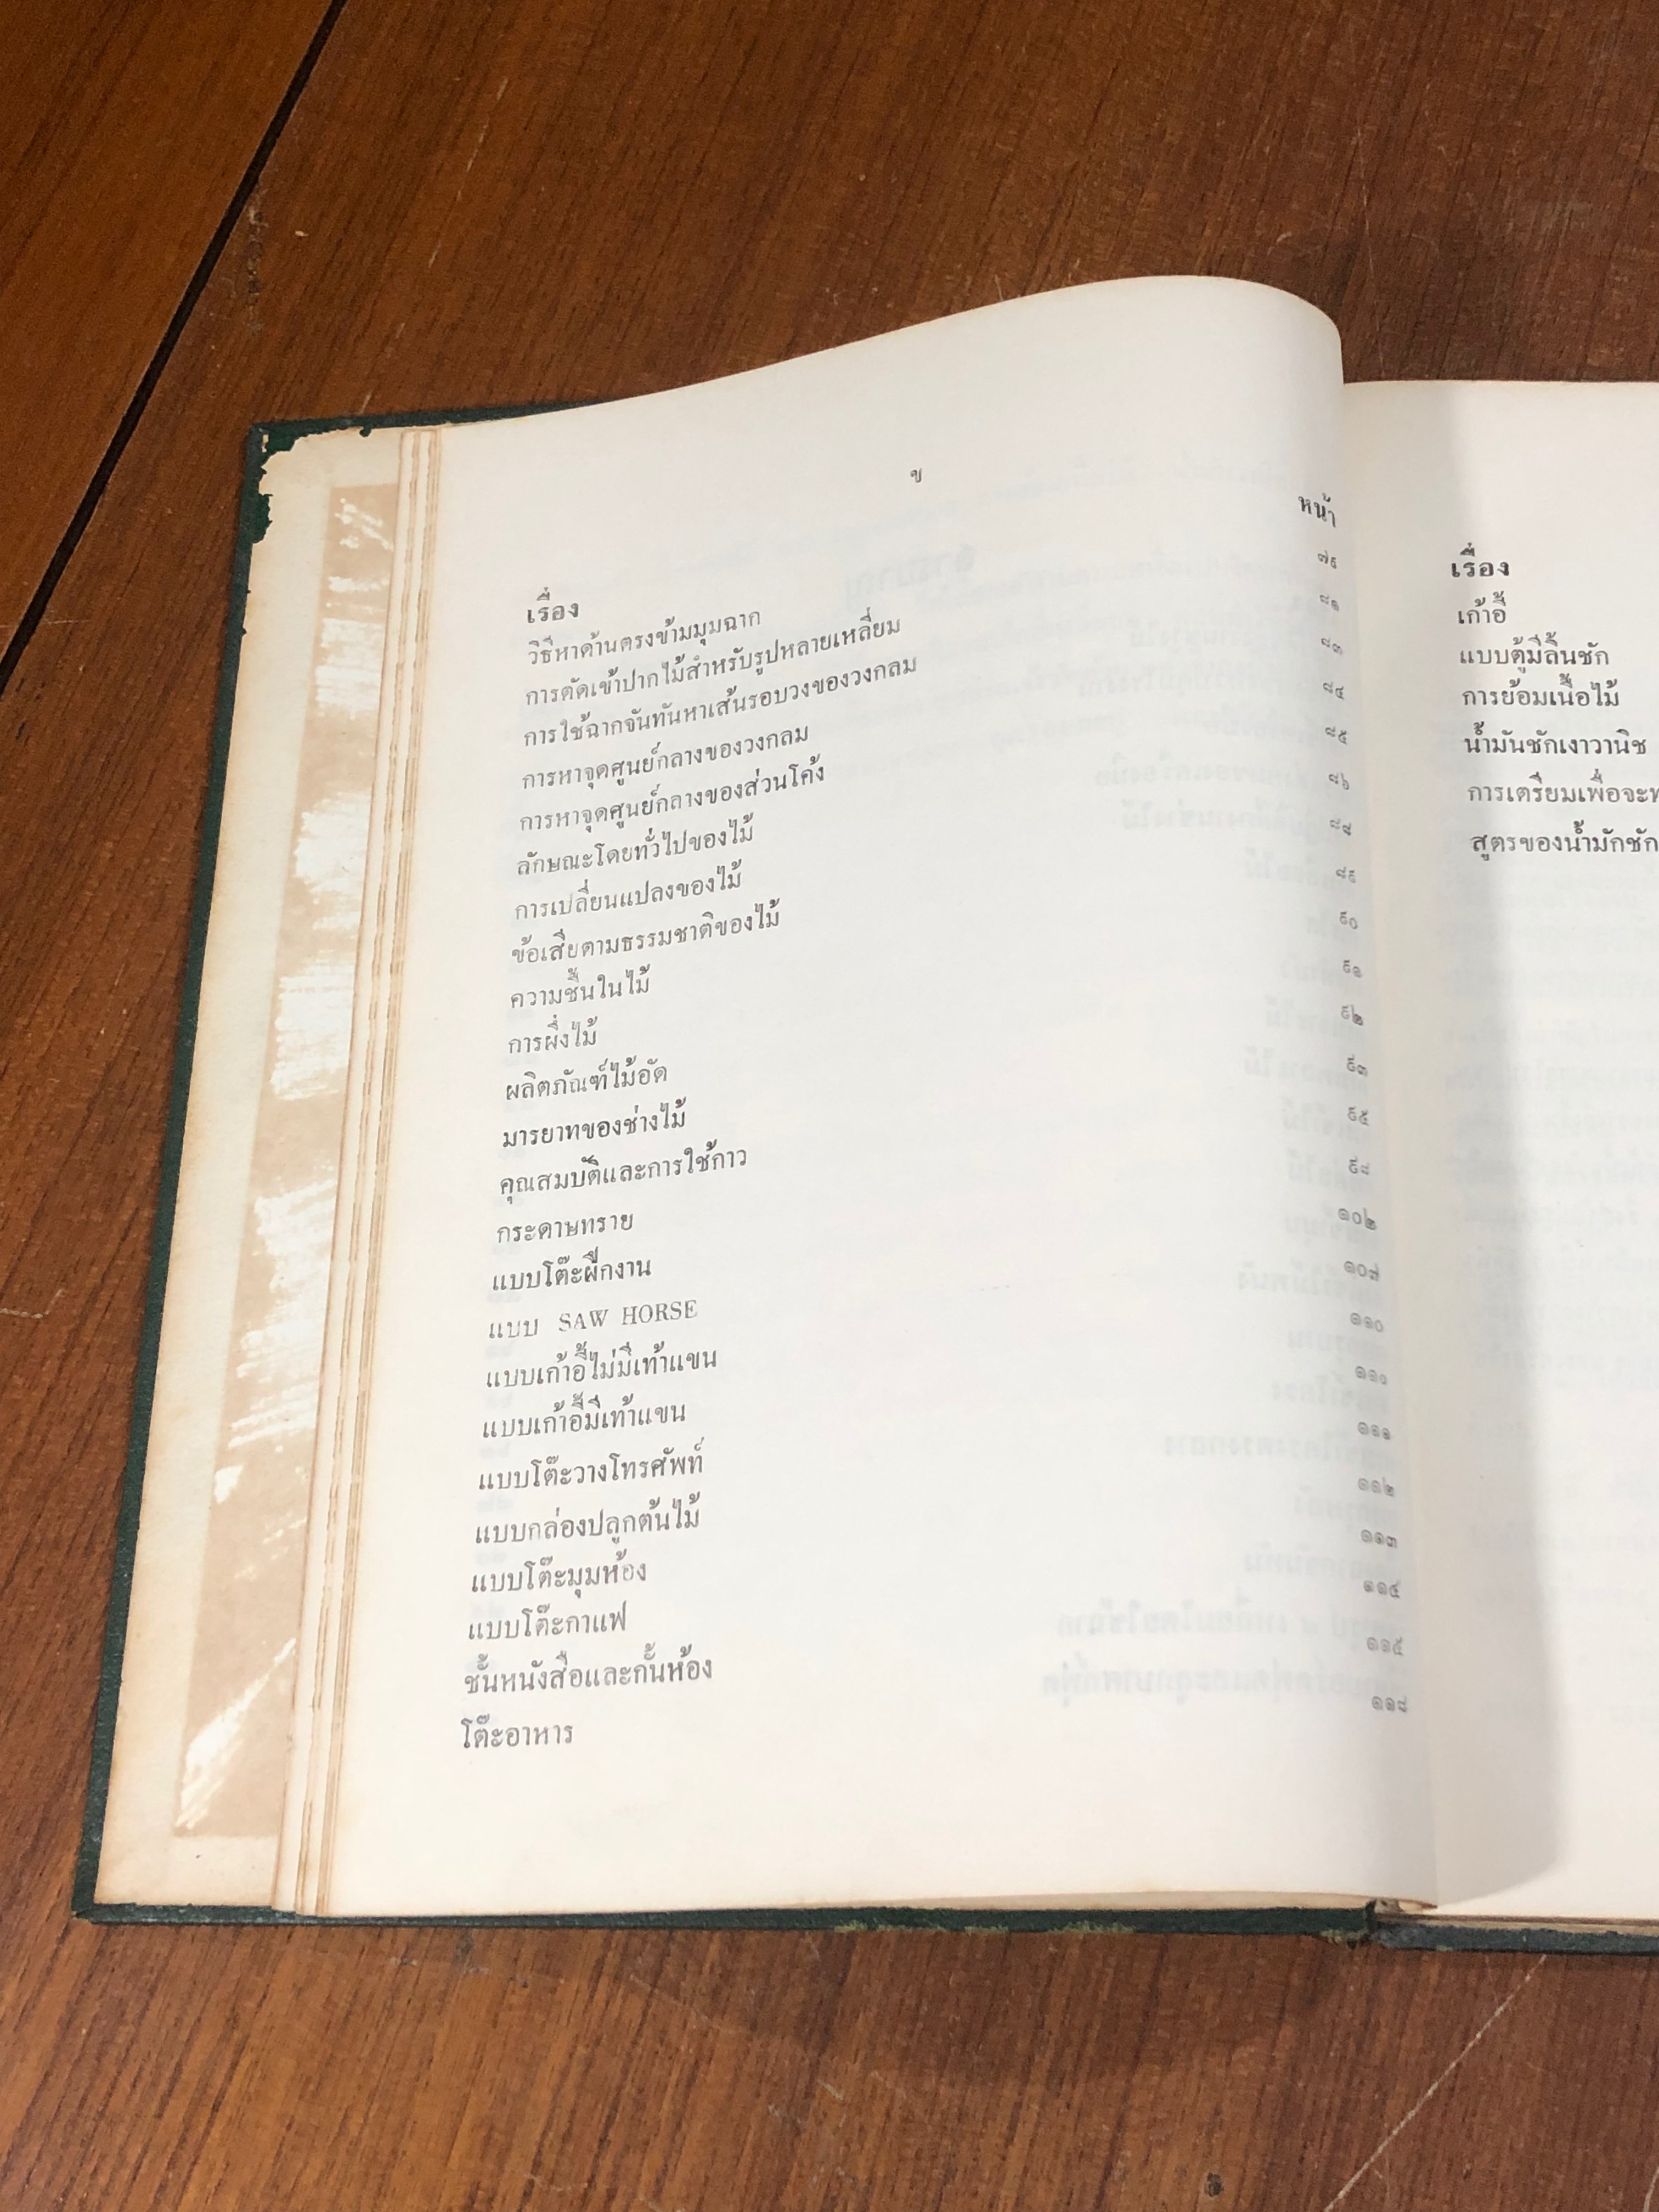 ข
เรื่อง หน้า
วิธีหาด้านตรงข้ามมุมฉาก ๗๙
การตัดเข้าปากไม้สำหรับรูปหลายเหลี่ยม ๘๑
การใช้ฉากจันทันหาเส้นรอบวงของวงกลม ๘๓
การหาจุดศูนย์กลางของวงกลม ๘๔
การหาจุดศูนย์กลางของส่วนโค้ง ๘๕
ลักษณะโดยทั่วไปของไม้ ๘๖
การเปลี่ยนแปลงของไม้
ข้อเสียตามธรรมชาติของไม้ ๘๙
ความชื้นในไม้ ๙๐
การผึ่งไม้ ๙๑
ผลิตภัณฑ์ไม้อัด ๙๒
มารยาทของช่างไม้ ๙๓
คุณสมบัติและการใช้กาว ๙๕
กระดาษทราย ๙๘
แบบโต๊ะฝึกงาน ๑๐๒
แบบ SAW HORSE
แบบเก้าอี้ไม่มีเท้าแขน ๑๑๐
แบบเก้าอี้มีเท้าแขน ๑๑๐
แบบโต๊ะวางโทรศัพท์ ๑๑๑
แบบกล่องปลูกต้นไม้ ๑๑๒
แบบโต๊ะมุมห้อง ๑๑๓
แบบโต๊ะกาแฟ ๑๑๔
ชั้นหนังสือและกั้นห้อง ๑๑๕
โต๊ะอาหาร ๑๑๘
เรื่อง
เก้าอี้
แบบตู้มีลิ้นชัก
การย้อมเนื้อไม้
น้ำมันชักเงาวานิช
การเตรียมเพื่อจะ
สูตรของน้ำมักชัก